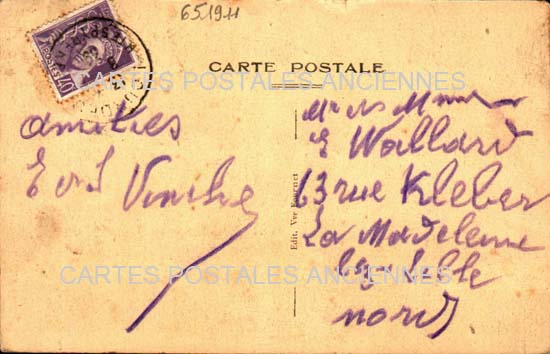 65.19.11
POSTES 40c
CARTE POSTALE
CARTES POSTALES ANCIENNES
amitiés
E et S
Mr et Mme
E Wallard
63 rue Kleber
La Madeleine
lez Lille
nord
Edit. Vve
CARTES POSTALES ANCIENNES